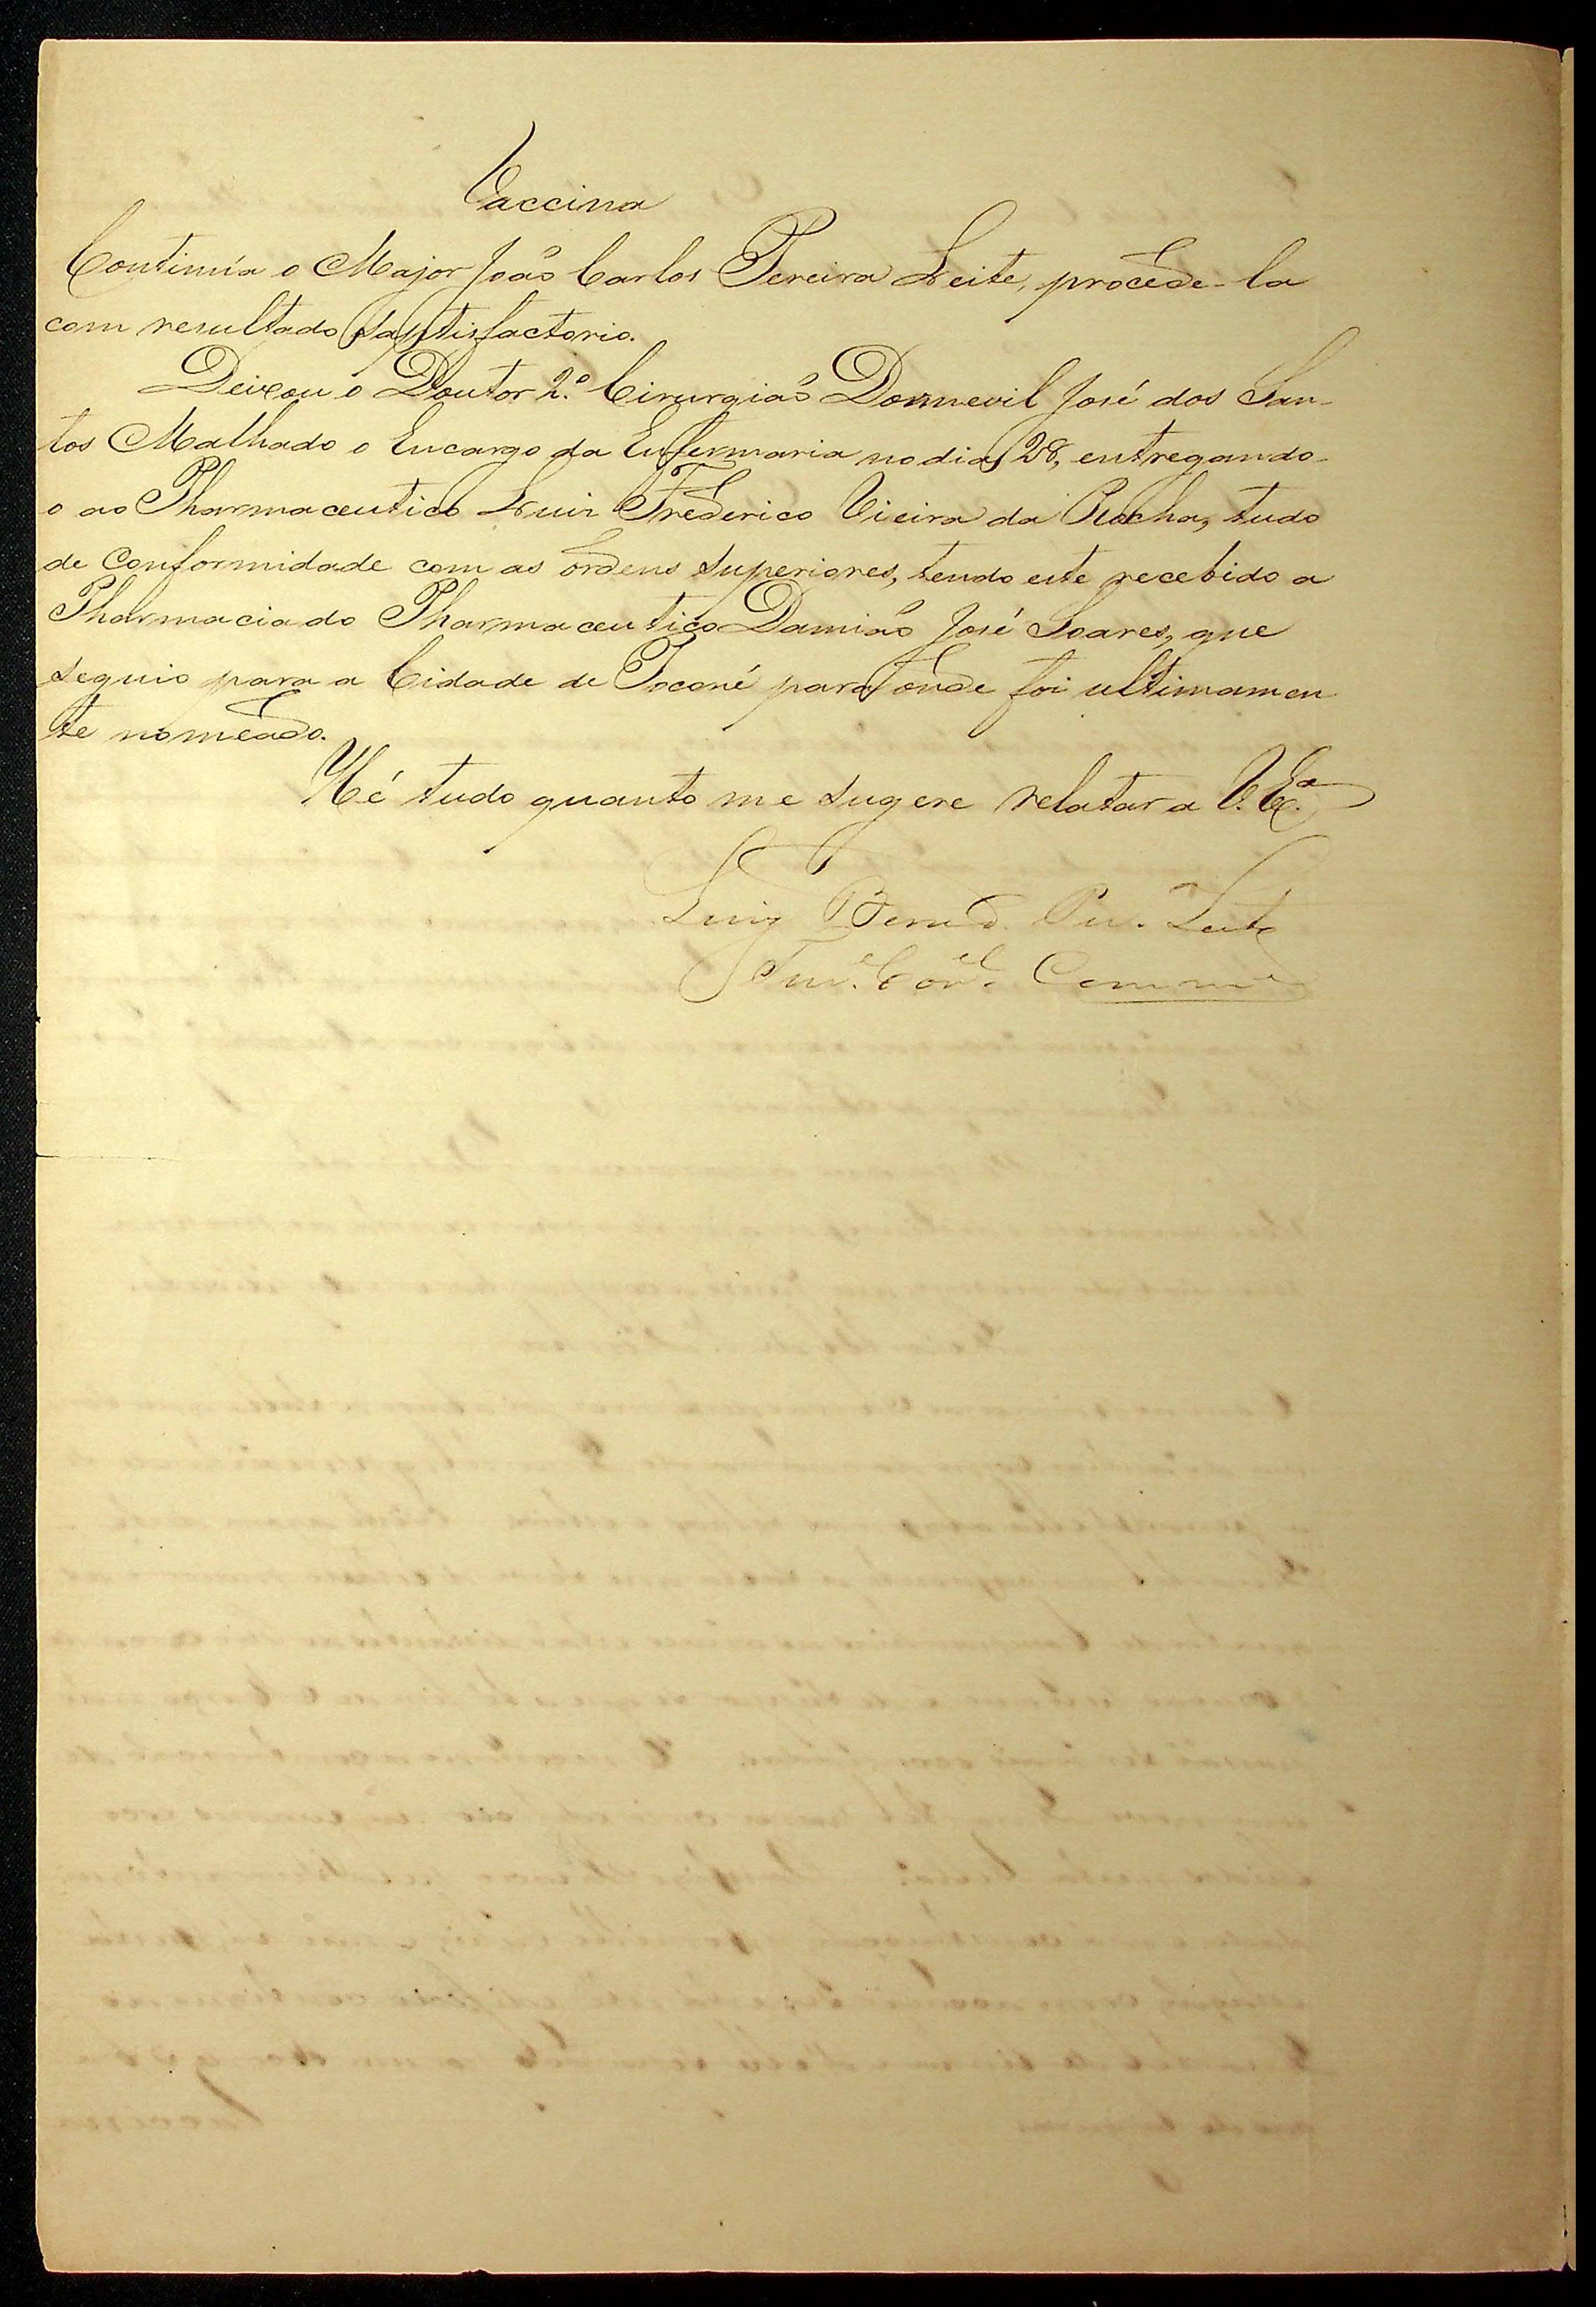 Vaccina
Continúa o Major João Carlos Pereira Leite, procede-la
com resultado satisfactorio.
Deixou o Doutor 2.º Cirurgião Dormevil José dos San-
tos Malhado o Encargo da Enfermaria no dia 28, entregando-
o ao Pharmaceutico Luiz Frederico Vieira da Rocha, tudo
de Conformidade com as ordens superiores, tendo este recebido a
Pharmacia do Pharmaceutico Damião José Soares, que
seguio para a Cidade de Poconé para onde foi ultimamen
te nomeado.
Hé tudo quanto me sugere relatar a V. Ex.ª
Luiz Bened. Per.ª Leite
Tn.e Cor.el Comm.e